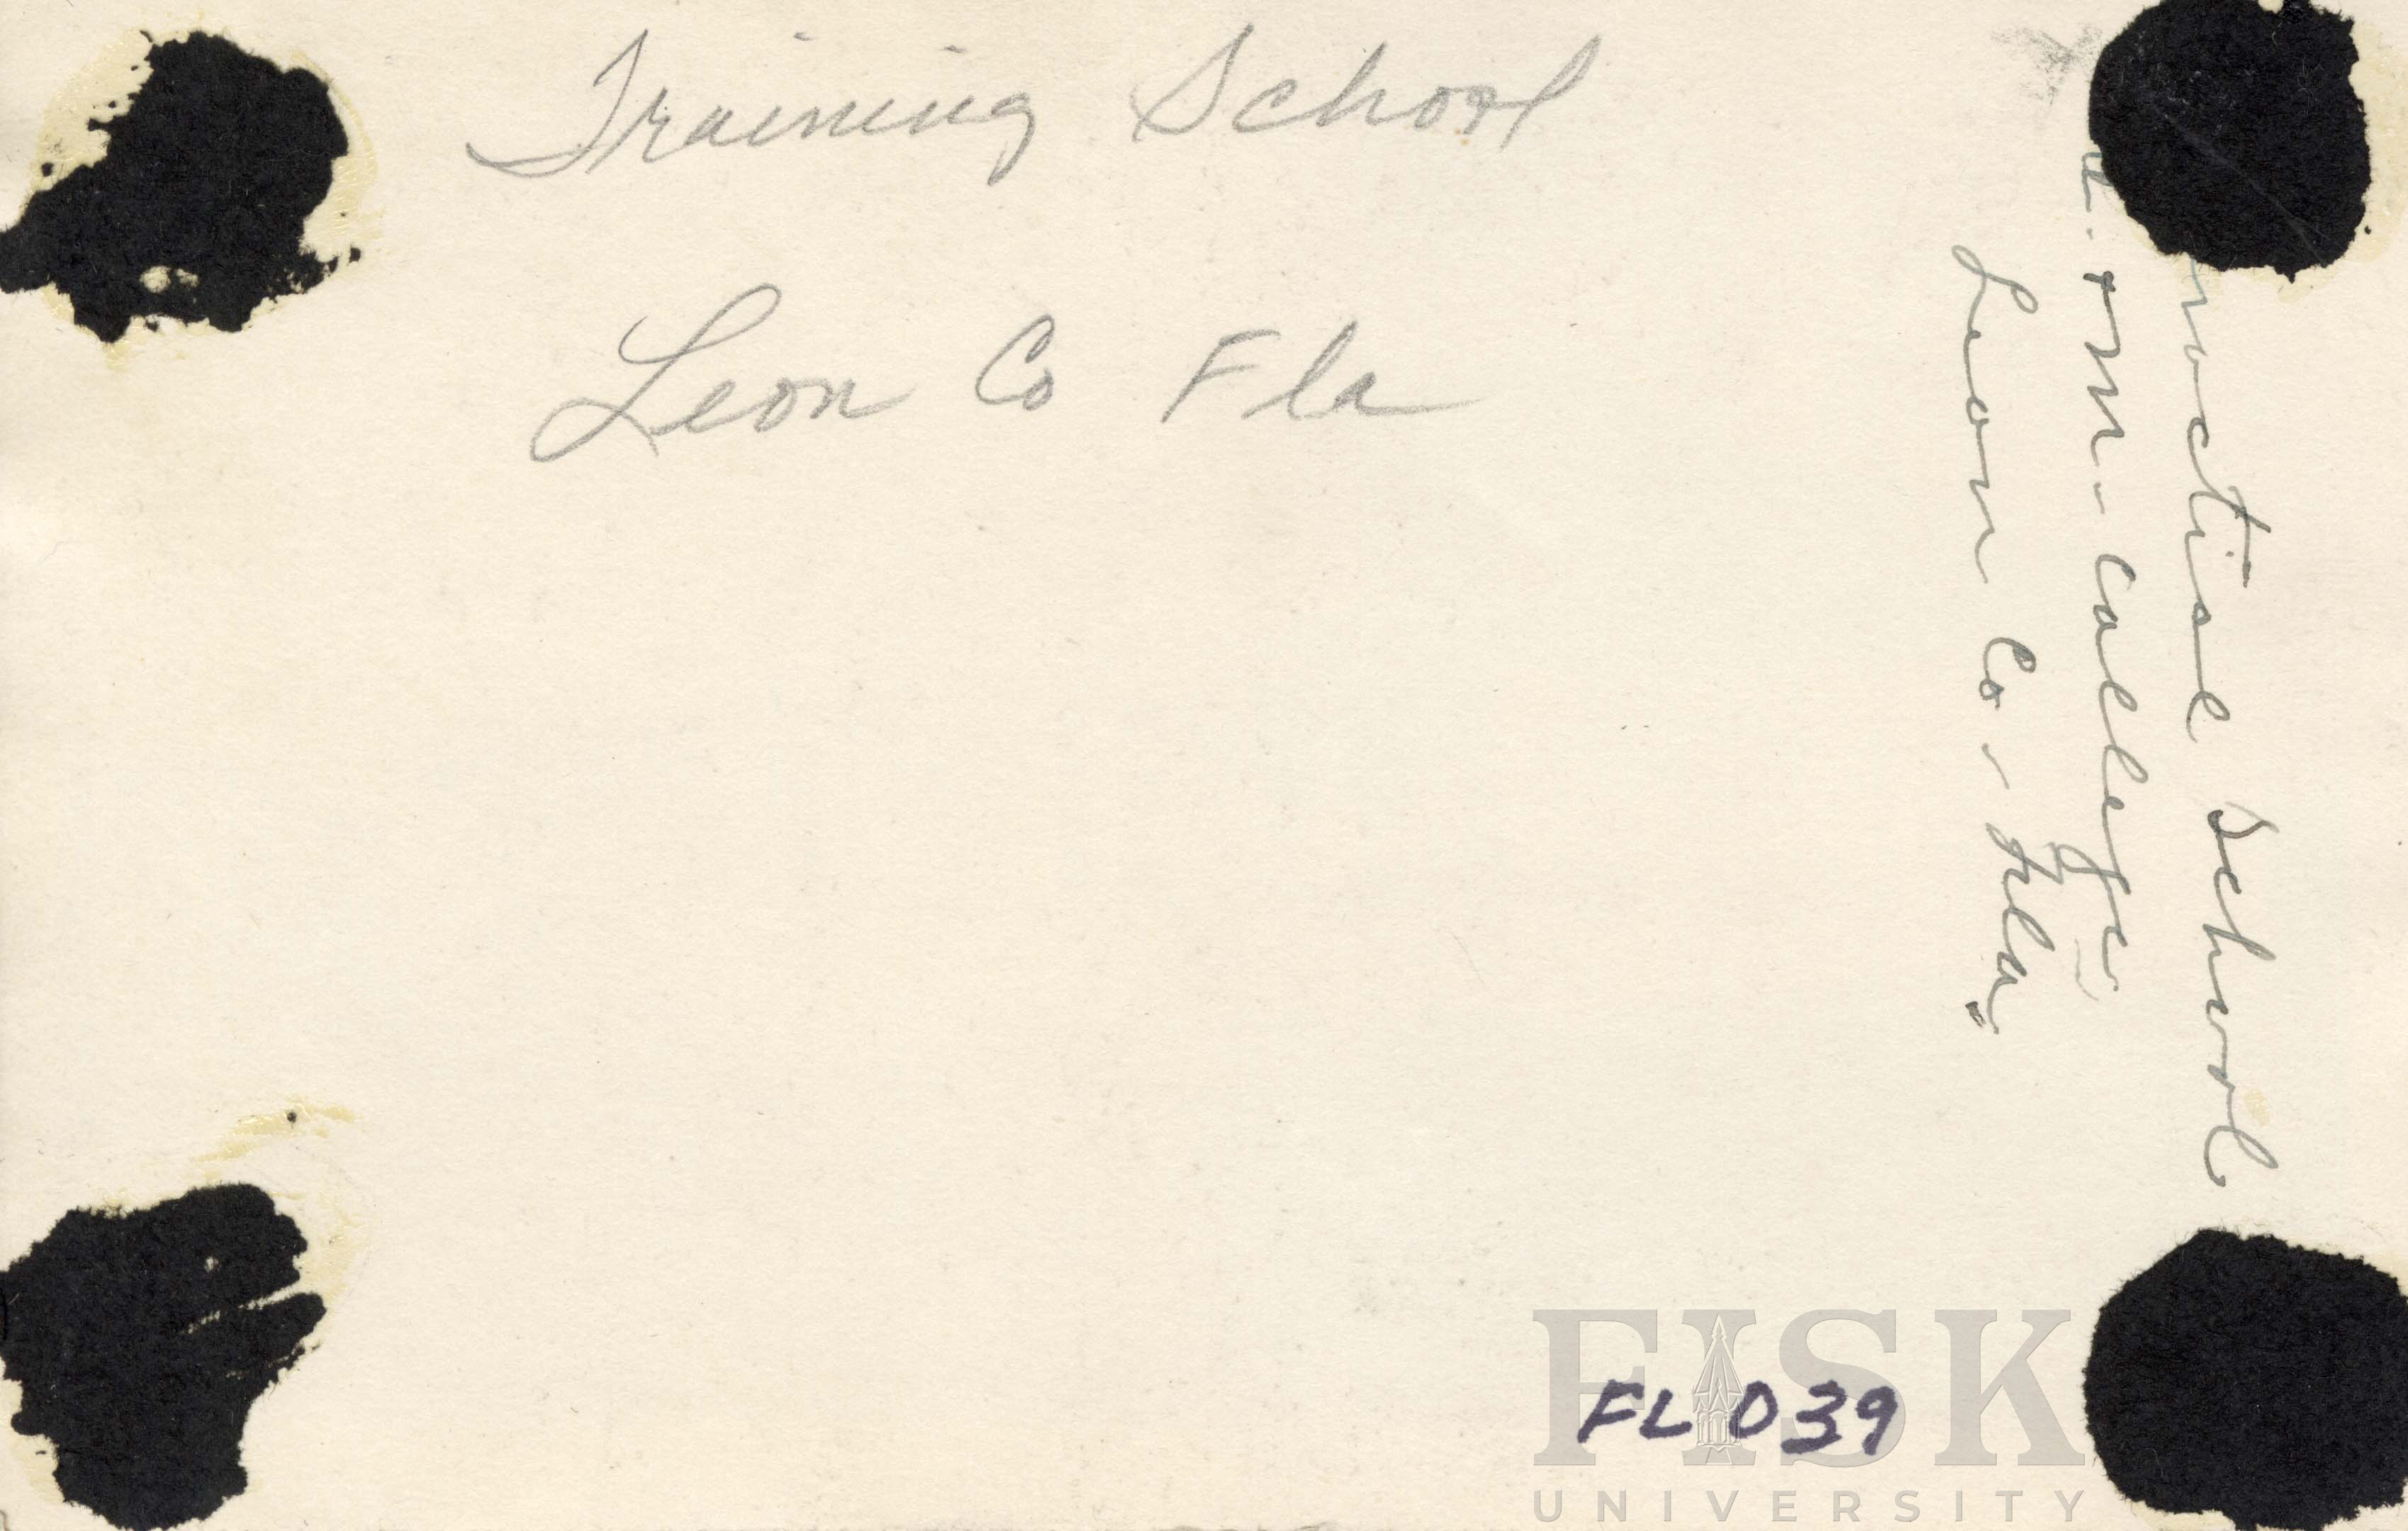 Training School
Leon Co Fla
ractise School
a. + M. College
Leon Co. Fla.
FL 039
FISK
UNIVERSITY